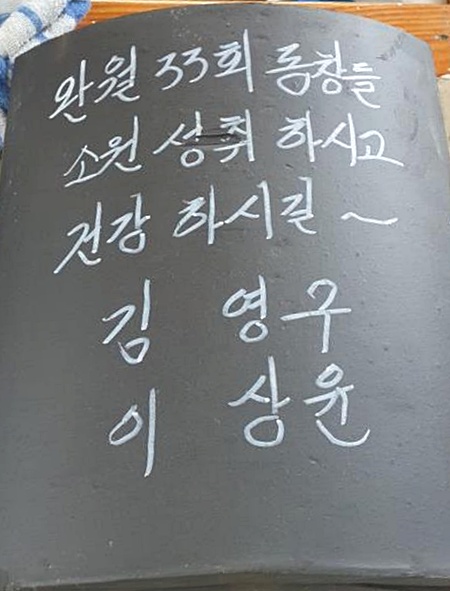 완월 33회 동창들
소원 성취 하시고
건강 하시길 ~
김 영구
이 상윤